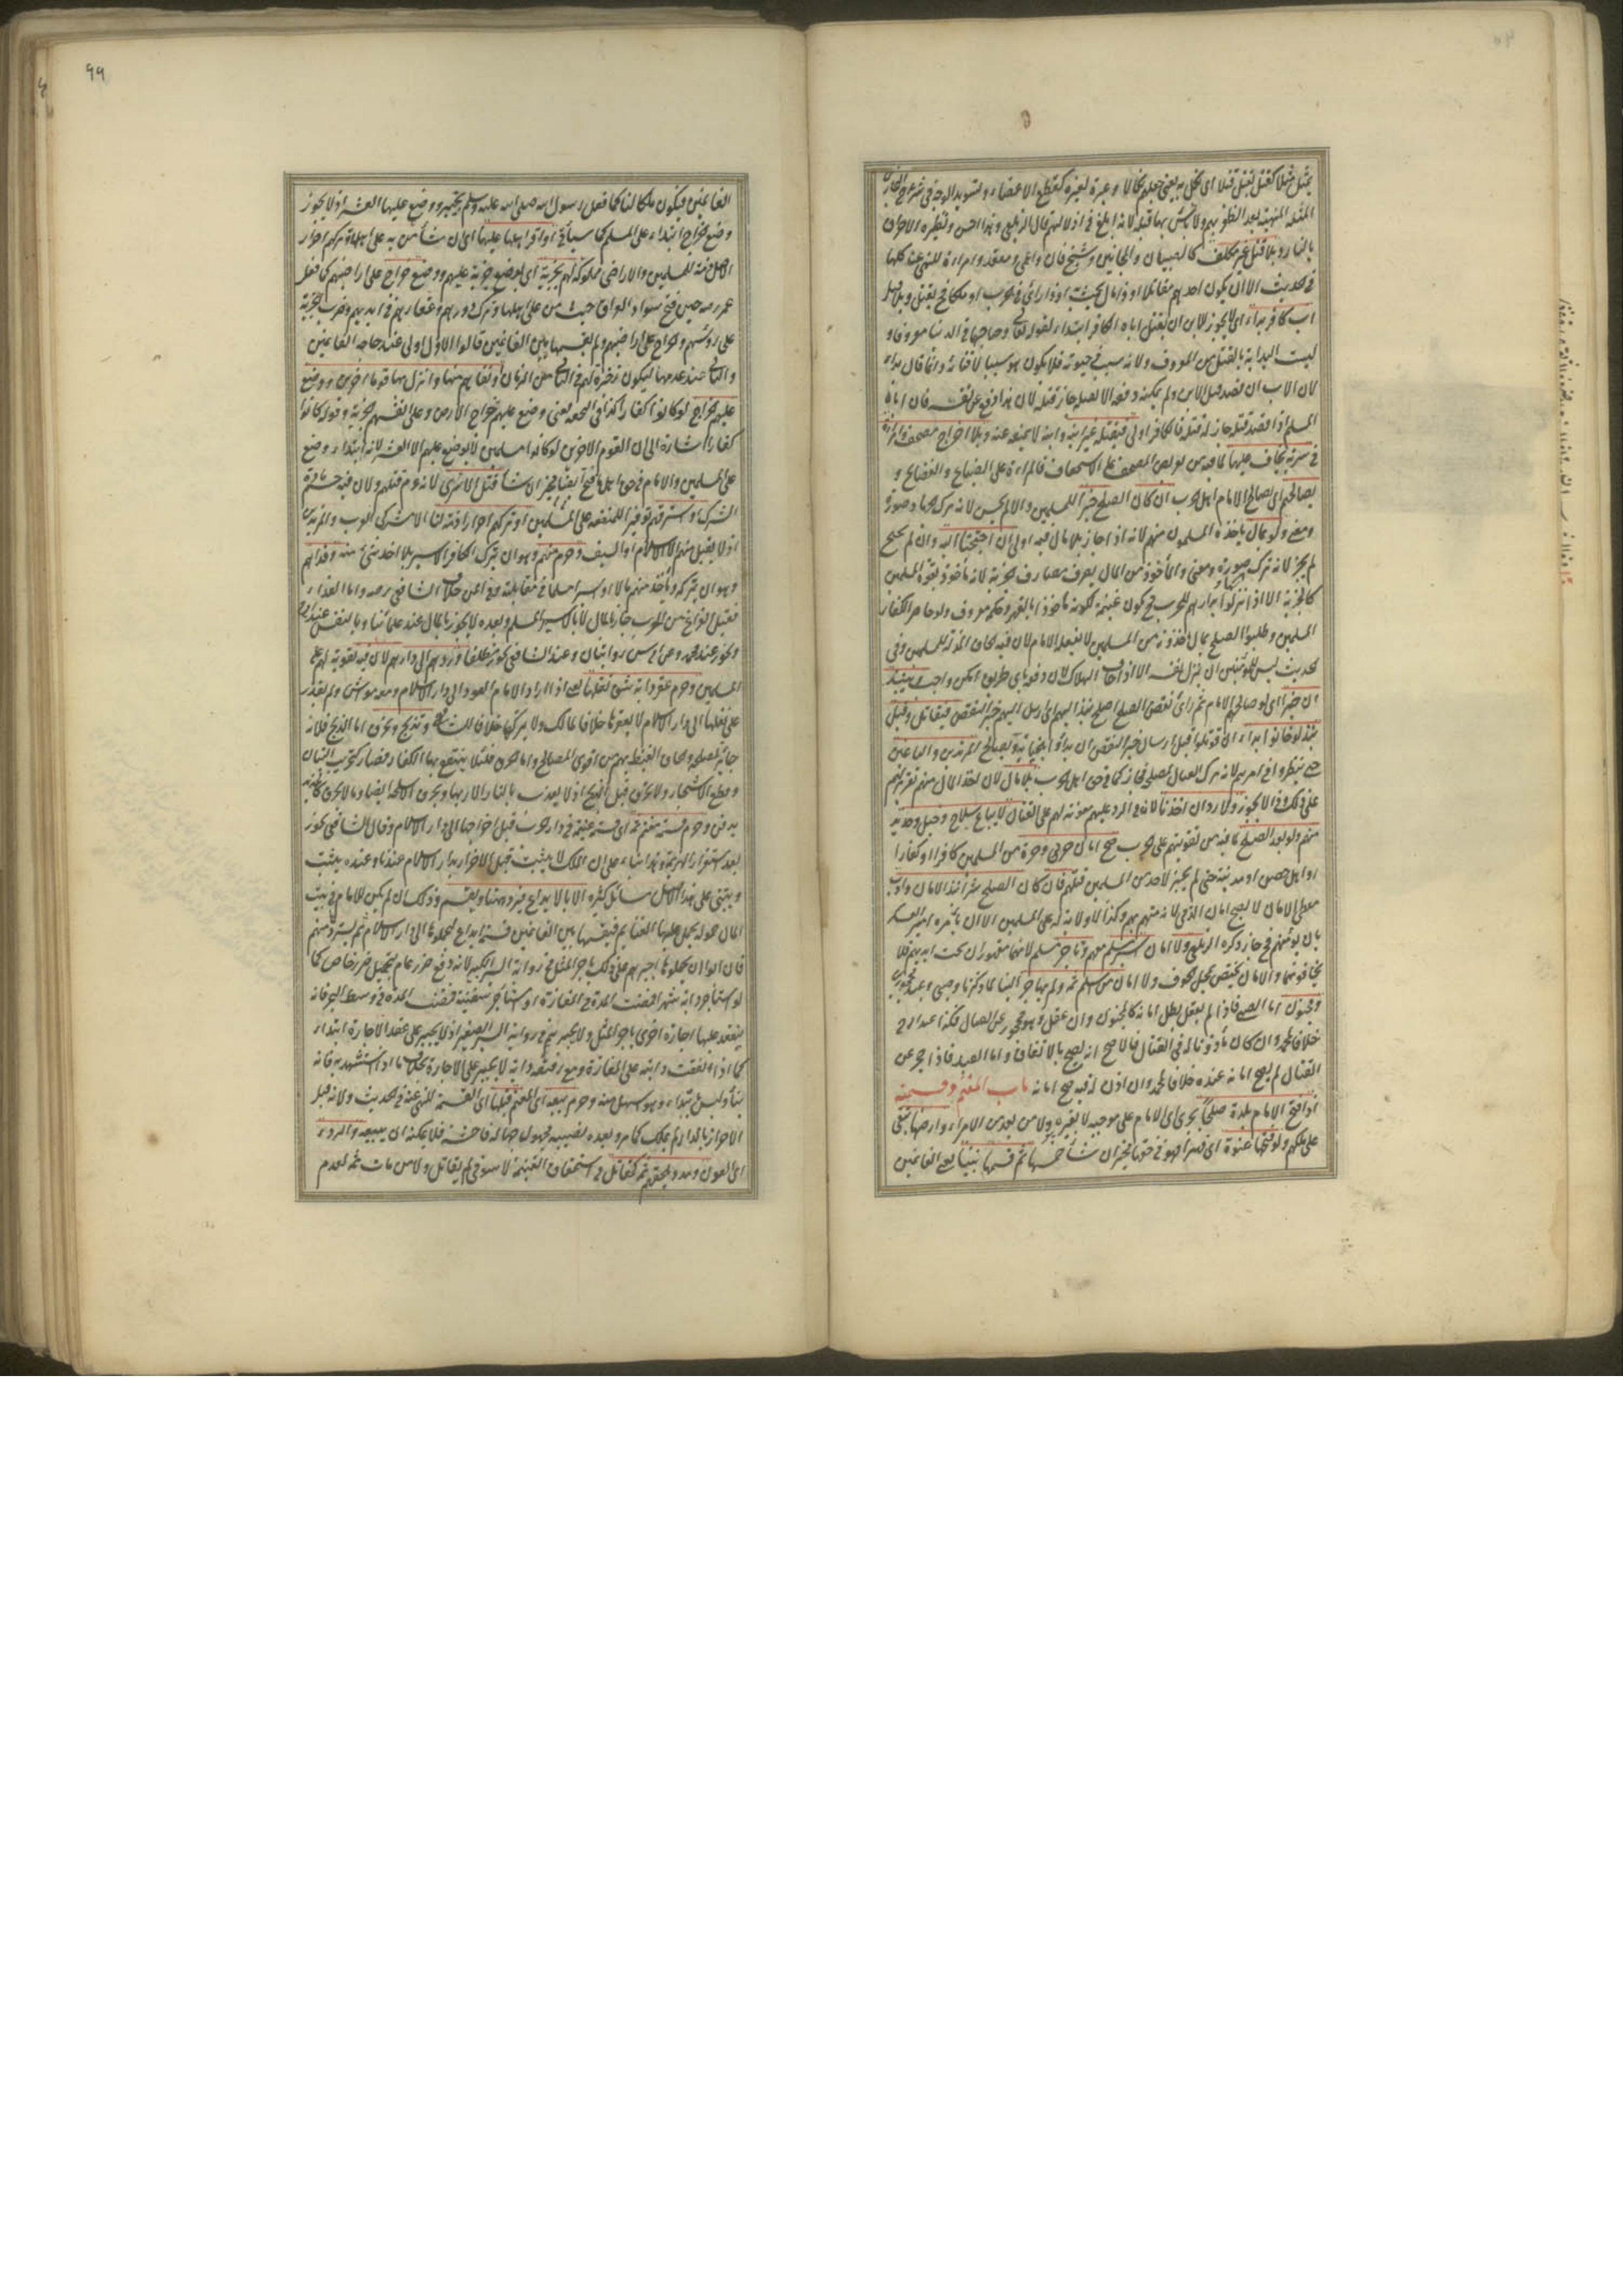 يمثل مثلا كقتل يقتل قتلا اى نكل به يعنى جعله نكالا وعبرة لغيره كقطع الاعضاء وتسويد الوجه
المثلة المنهية بعد الظفر بهم ولا بأس بها قبله لانه ابلغ فى اذلالهم قال الزيلعى وهذا احسن ونظيره الاحراق
بالنار وبلا قتل غير مكلف كالصبيان والمجانين وشيخ فان واعمى ومقعد وامراءة للنهى عن كلها
فى الحديث الا ان يكون احدهم مقاتلا او ذا مال يحث او ذا رائ فى الحرب او ملكا فح يقتل وبلا قتل
اب كافر بداء اى لا يجوز للابن ان يقتل اباه الكافر ابتداء لقوله تعالى وصاحبهما فى الدنيا معروفا و
ليست البداية بالقتل من المعروف ولانه سبب فى حيوته فلا يكون هو سببا لافنائه وانما قال بداء
لان الاب ان قصد قتل الابن ولم يمكنه دفعه الا بقتله جاز قتله لان هذا دفع عن نفسه فان اباه
المسلم اذا قصد قتله جاز له قتله فالكافر اولى فيقتله غير ابنه وابنه لا يمنعه عنه وبلا اخراج مصحف وامراءة
فى سرية يخاف عليها لما فيه من تعريض المصحف على الاستخفاف والمراءة على الضياع والفضائح و
يصالحهم اى يصالح الامام اهل الحرب ان كان الصلح خيرا للمسلمين والا لم يحسن لانه ترك الجهاد صورة
ومعنى ولو بمال يأخذه المسلمون منهم لانه اذا جاز بلا مال فبه اولى ان احتجنا اليه وان لم نحتج
لم يجز لانه ترك صورة ومعنى والمأخوذ من المال يصرف مصارف الجزية لانه مأخوذ بقوة المسلمين
كالجزية الا اذا نزلوا بدارهم للحرب فح يكون غنيمة لكونه مأخوذا بالقهر وحكمه معروف ولو حاصر الكفار
المسلمين وطلبوا الصلح بمال يأخذونه من المسلمين لا يفعله الامام لان فيه الحاق المذلة للمسلمين وفى
الحديث ليس للمؤمن ان يذل نفسه الا اذا خاف الهلاك لان دفعه باى طريق امكن واجب ونبذ
ان خيرا اى لو صالحهم الامام ثم رأى نقض الصلح اصلح نبذ اليهم اى ارسل اليهم خبر النقض فيقاتل وقبل
نبذ لو خانوا بداء اى قوتلوا قبل ارسال خبر النقض ان بدأوا بخيانة ويصالح المرتدين والباغين
حتى ينظروا فى امرهم لانه ترك القتال لمصلحة فجاز كما فى حق اهل الحرب بلا مال لان اخذ المال منهم تقريرلهم
على ذلك وذا لا يجوز ولا رد ان اخذنا لانه فى الرد عليهم معونة لهم على القتال لا يباع سلاح وخيل وحديد
منهم ولو بعد الصلح لما فيه من تقويتهم على الحرب صح امان حر وحرة من المسلمين كافرا او كفارا
او اهل حصن او مدينة حتى لم يجز لاحد من المسلمين قتلهم فان كان الصلح شرا نبذ الامان وادب
معطى الامان لا يصح امان الذمى لانه متهم بهم وكذا لا ولاية له على المسلمين الا ان يأمره امير العسكر
بان يؤمنهم فح جاز ذكره الزيلعى ولا امان اسير مسلم معهم وتاجر مسلم لانهما مقهوران تحت ايديهم فلا
يخافونهما والامان يختص بمحل الخوف ولا امان من اسلم ثمه ولم يهاجر الينا لما ذكرنا وصبى وعبد محجورين
ومجنون اما الصبى فاذا لم يعقل بطل امانه كالمجنون وان عقل وهو محجور عن القتال فكذا عند ابى ح
خلافا لمحمد وان كان مأذونا له فى القتال فالاصح انه يصح بالاتفاق واما العبد فاذا حجر عن
القتال لم يصح امانه عنده خلافا لمحمد وان اذن له فيه صح امانه باب المغنم وقسمته
اذا فتح الامام بلدة صلحا يجرى اى الامام على موجبه لا يغيره ولا من بعده من الامراء وارضها تبقى
على ملكهم ولو فتحها عنوة اى قهرا فهو فى حقها مخير ان شاء خمسها ثم قسمها بيننا يعنى الغانمين
٩٩
الغانمين فيكون ملكا لنا كما فعل رسول الله صلى الله عليه وسلم بخيبر ووضع عليها العشر اذ لا يجوز
وضع الخراج ابتداء على المسلم كما سيأتى او اقر اهلها عليها اى ان شاء من به على اهلها وتركهم احرار
الاصل ذمة للمسلمين والاراضى مملوكة لهم بجزية اى بوضع جزية عليهم ووضع خراج على اراضيهم كما فعل
عمر رضه حين فتح سواد العراق حيث من على اهلها وترك دورهم وعقارهم فى ايديهم وضرب الجزية
على رؤسهم والخراج على اراضيهم ولم يقسمها بين الغانمين قالوا الاول اولى عند حاجة الغانمين
والثانى عند عدمها ليكون ذخرة لهم فى الثانى من الزمان او نفاهم منها وانزل بها قوما اخرين ووضع
عليهم الخراج لو كانوا كفارا كذا فى التحفة يعنى وضع عليهم خراج الارض وعلى انفسهم الجزية وقوله كانوا
كفارا اشارة الى ان القوم الاخرين لو كانوا مسلمين لا يوضع عليهم الا العشر لانه ابتداء وضع
على المسلمين والامام فى حق اهل ما فتح ايضا مخير ان شاء قتل الاسرى لانه عم قتلهم ولان فيه حسم مادة
الشرك او استرقهم توفيرا للمنفعة على المسلمين او تركهم احرارا ذمة لنا الا مشركى العرب والمرتدين
اذ لا يقبل منهم الا الاسلام او السيف وحرم منهم وهو ان يترك الكافر الاسير بلا اخذ شئ منه وفداهم
وهو ان يتركه ويأخذ منهم مالا او اسيرا مسلما فى مقابلته وفى المن خلاف الشافعى رحمه واما الفداء
فقبل الفراغ من الحرب جاز بالمال لا بالاسير المسلم وبعده لا يجوز بالمال عند علمائنا وبالنفس عند ابى ح
ويجوز عند محمد وعن ابى يوسف روايتان وعند الشافعى يجوز مطلقا وردهم الى دارهم لان فيه تقوية لهم على
المسلمين وحرم عقر دابة شق نقلها يعنى اذا اراد الامام العود الى دار الاسلام ومعه مواش ولم يقدر
على نقلها الى دار الاسلام لا يعقرها خلافا لمالك ولا يتركها خلافا للشافعى وتذبح وتحرق اما الذبح فلانه
جائز لمصلحة والحاق الغيظ بهم من اقوى المصالح واما الحرق فلئلا ينتفع بها الكفار فصار كتخريب البنيان
وقطع الاشجار ولا يحرق قبل الذبح اذ لا يعذب بالنار الا ربها وتحرق الاسلحة ايضا وما لا يحرق كالحديد
يدفن وحرم قسمة مغنم ثمه اى قسمة غنيمة فى دار الحرب قبل اخراجها الى دار الاسلام وقال الشافعى يجوز
بعد استقرار الهزيمة وهذا بناء على ان الملك لا يثبت قبل الاحراز بدار الاسلام عندنا وعنده يثبت
ويبتنى على هذا الاصل مسائل كثيرة الا بالايداع فيرد ههنا ويقسم وذلك ان لم يكن للامام فى بيت
المال حمولة يحمل عليها الغنايم فيقسمها بين الغانمين قسمة ايداع ليحملوها الى دار الاسلام ثم يسترد منهم
فان ابوا ان يحملوها اجبرهم على ذلك باجر المثل فى رواية السير الكبير لانه دفع ضرر عام بتحميل ضرر خاص كما
لو استأجر دابة شهرا فمضت المدة فى المفازة او استأجر سفينة فمضت المدة فى وسط البحر فانه
ينعقد عليها اجارة اخرى باجر المثل ولا يجبرهم فى رواية السير الصغير اذ لا يجبر على عقد الاجارة ابتداء
كما اذا نفقت دابته على المفازة ومع رفيقه دابة لا يجبر على الاجارة بخلاف ما استشهد به فانه
بناء وليس بابتداء وهو اسهل منه وحرم بيعه اى المغنم قبلها اى القسمة للنهى عنه فى الحديث ولانه قبل
الاحراز بالدار لم يملك كما مر وبعده نصيبه مجهول جهالة فاحشة فلا يمكنه ان يبيعه والردء
اى العون ومدد يلحقهم ثمه كمقاتل فى استحقاق الغنيمة لا سوقى لم يقاتل ولا من مات ثمه لعدم